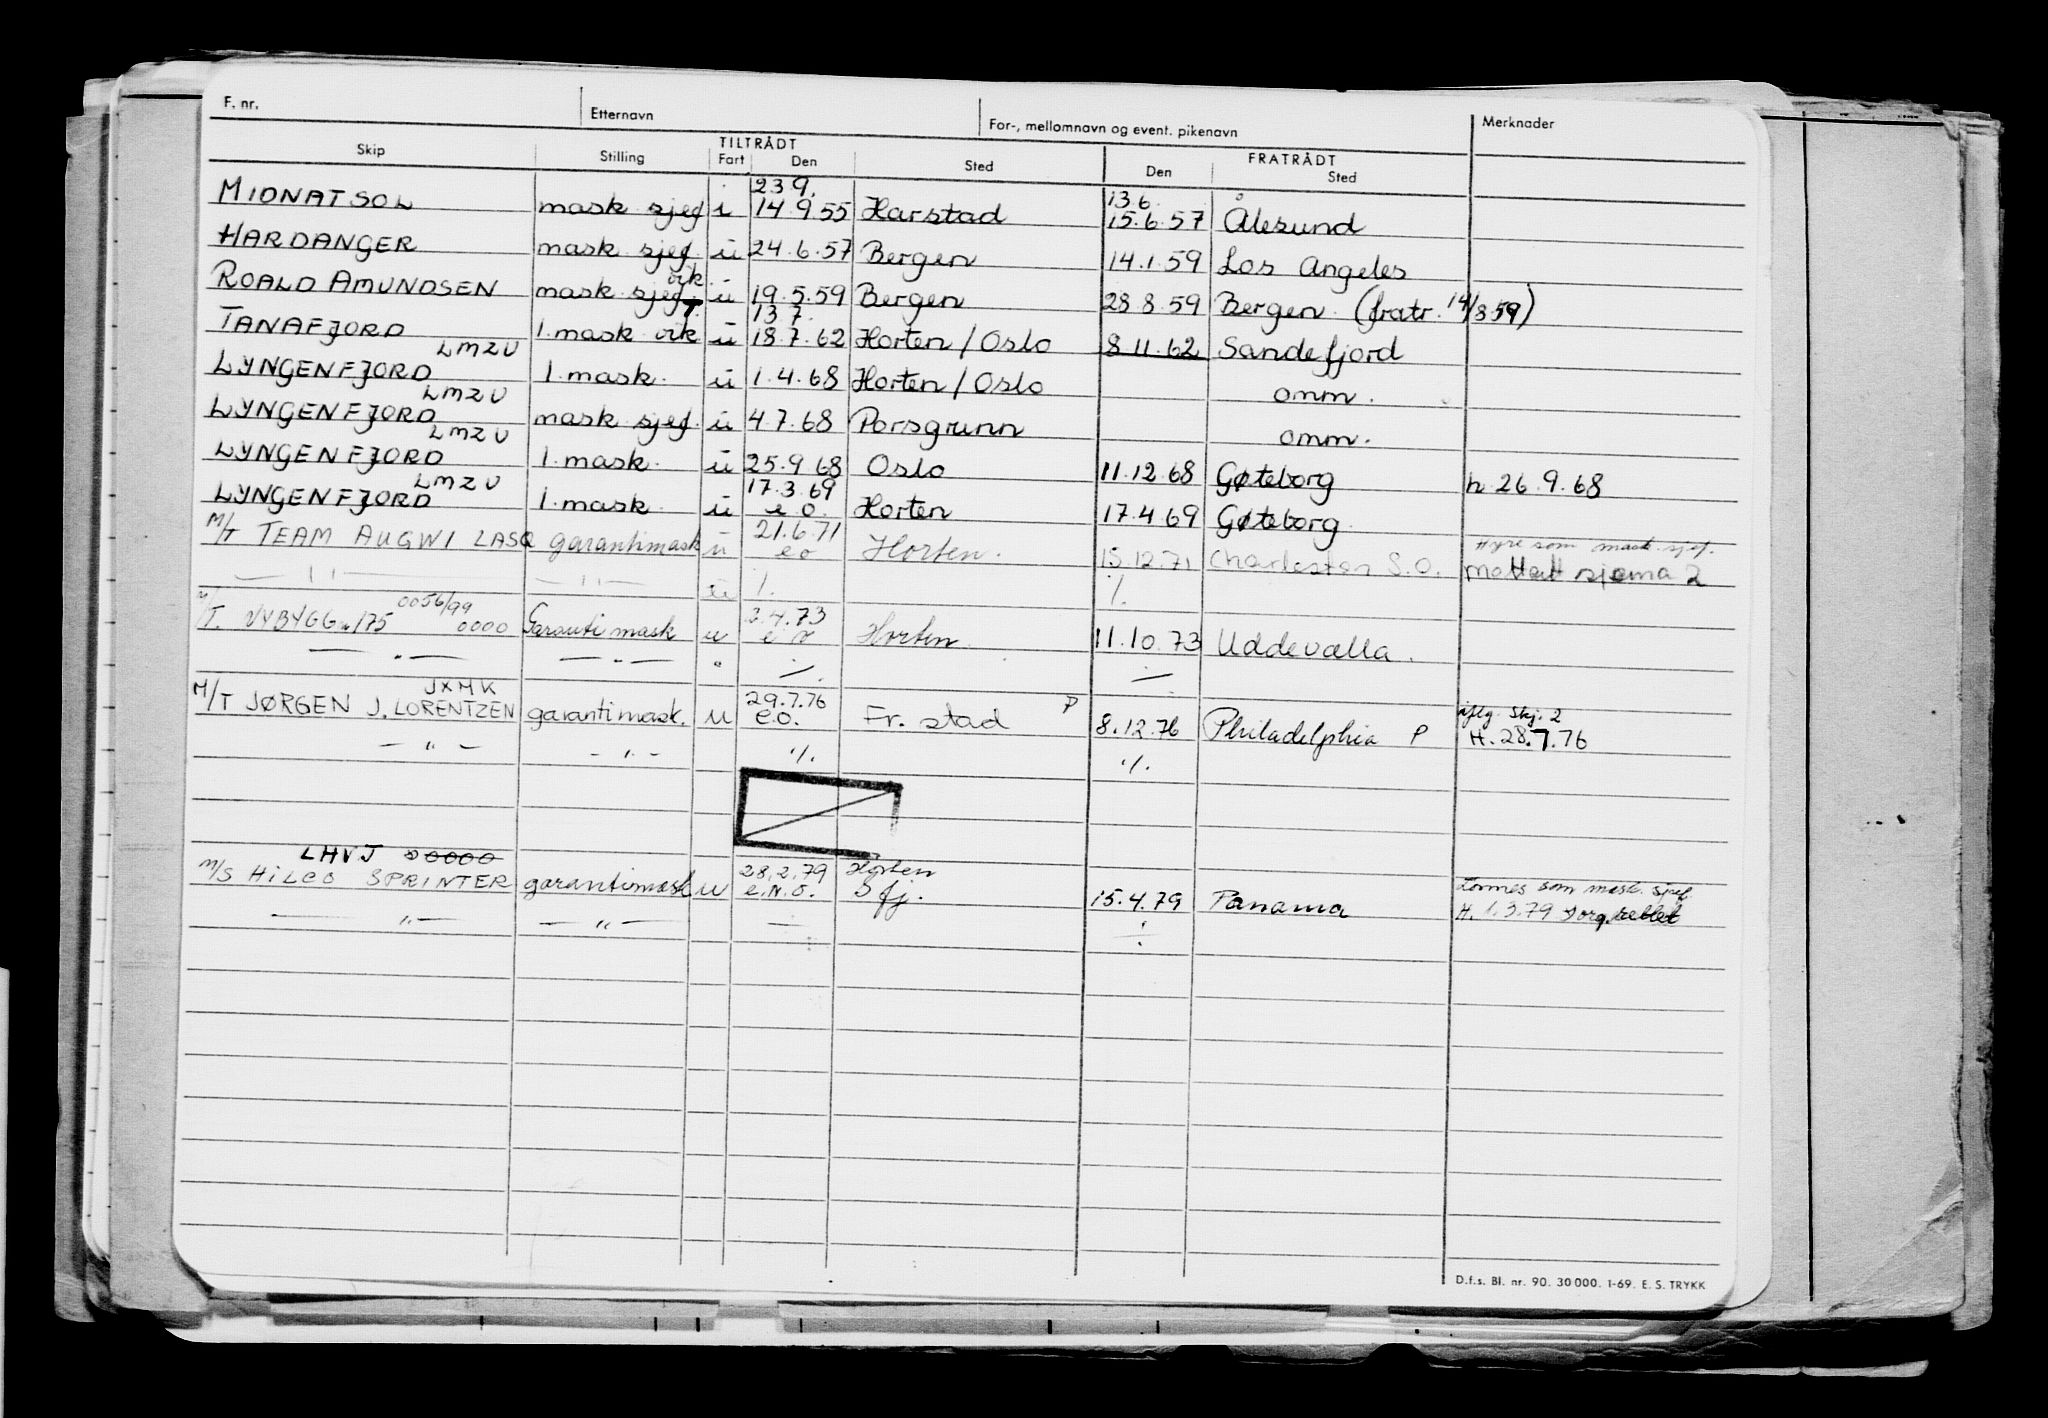 F. nr. Etternavn For-, mellomnavn og event. pikenavn Merknader
TILTRÅDT FRATRÅDT
Skip Stilling Fart Den Sted Den Sted
23.9. 13.6.
MIDNATSOL mask sjef i 14.9.55 Harstad 15.6.57 Ålesund
HARDANGER mask sjef. u 24.6.57 Bergen 14.1.59 Los Angeles
vik.
ROALD AMUNDSEN mask sjef, u 19.5.59 Bergen 28.8.59 Bergen. (fratr. 14/8 59)
13.7.
TANAFJORD 1. mask vik u 18.7.62 Horten / Oslo 8.11.62 Sandefjord
LMZU
LYNGENFJORD 1. mask. u 1.4.68 Horten / Oslo omm.
LMZU
LYNGENFJORD mask sjef. u 4.7.68 Porsgrunn omm.
LMZU
LYNGENFJORD 1. mask. u 25.9.68 Oslo 11.12.68 Gøteborg h. 26.9.68
LMZU 17.3.69
LYNGENFJORD 1. mask u e o. Horten 17.4.69 Gøteborg
21.6.71 Hyre som mask. sjef.
M/T TEAM AUGWI LASQ garantimask u e o Horten. 15.12.71 Charleston S.O. Mottatt sjema 2
— ıı — — ıı — u ·/. ·/.
0056/99 2.4.73
M/T. NYBYGG 175 0000 Garanti mask u e o Horten 11.10.73 Uddevalla.
— „ — — „ — „ ·/. ·/.
JXHK 29.7.76 P iflg. Skj. 2
M/T JØRGEN J. LORENTZEN garantimask. u e.o. Fr. stad 8.12.76 Philadelphia P H. 28.7.76
— „ — — „ — ·/. ·/.
LHVJ 0000 28.2.79 Horten Lønnes som mask. sjef.
M/S HILCO SPRINTER garantimask u e.n.o. S fj. 15.4.79 Panama H. 1.3.79
— „ — — „ — ÷ ÷
D.f.s. Bl. nr. 90. 30 000. 1-69. E. S. TRYKK